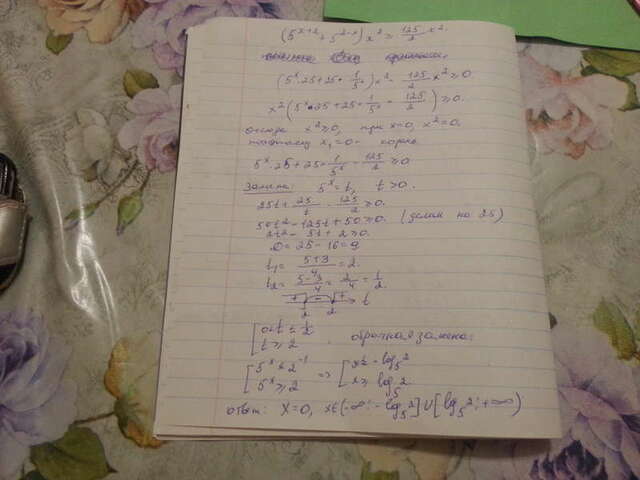 (5^{x+2} + 5^{2-x}) x² ≥ 125/2 x²
(5^x · 25 + 25 · 1/5^x) x² - 125/2 x² ≥ 0.
x² (5^x · 25 + 25 · 1/5^x - 125/2) ≥ 0.
x² ≥ 0, при x=0, x² = 0.
поэтому x₁ = 0 - корень
5^x · 25 + 25 · 1/5^x - 125/2 ≥ 0
Замена: 5^x = t, t > 0.
25t + 25/t - 125/2 ≥ 0.
50t² - 125t + 50 ≥ 0. (делим на 25)
2t² - 5t + 2 ≥ 0.
D = 25 - 16 = 9
t₁ = 5+3/4 = 2.
t₂ = 5-3/4 = 2/4 = 1/2.
+ - + t
1/2 2
[ 0 < t ≤ 1/2
[ t ≥ 2 обратная замена:
[ 5^x ≤ 2^{-1} => [ x ≤ -log₅2
[ 5^x ≥ 2 [ x ≥ log₅2
ответ: x=0, x∈(-∞; -log₅2] ∪ [log₅2; +∞)